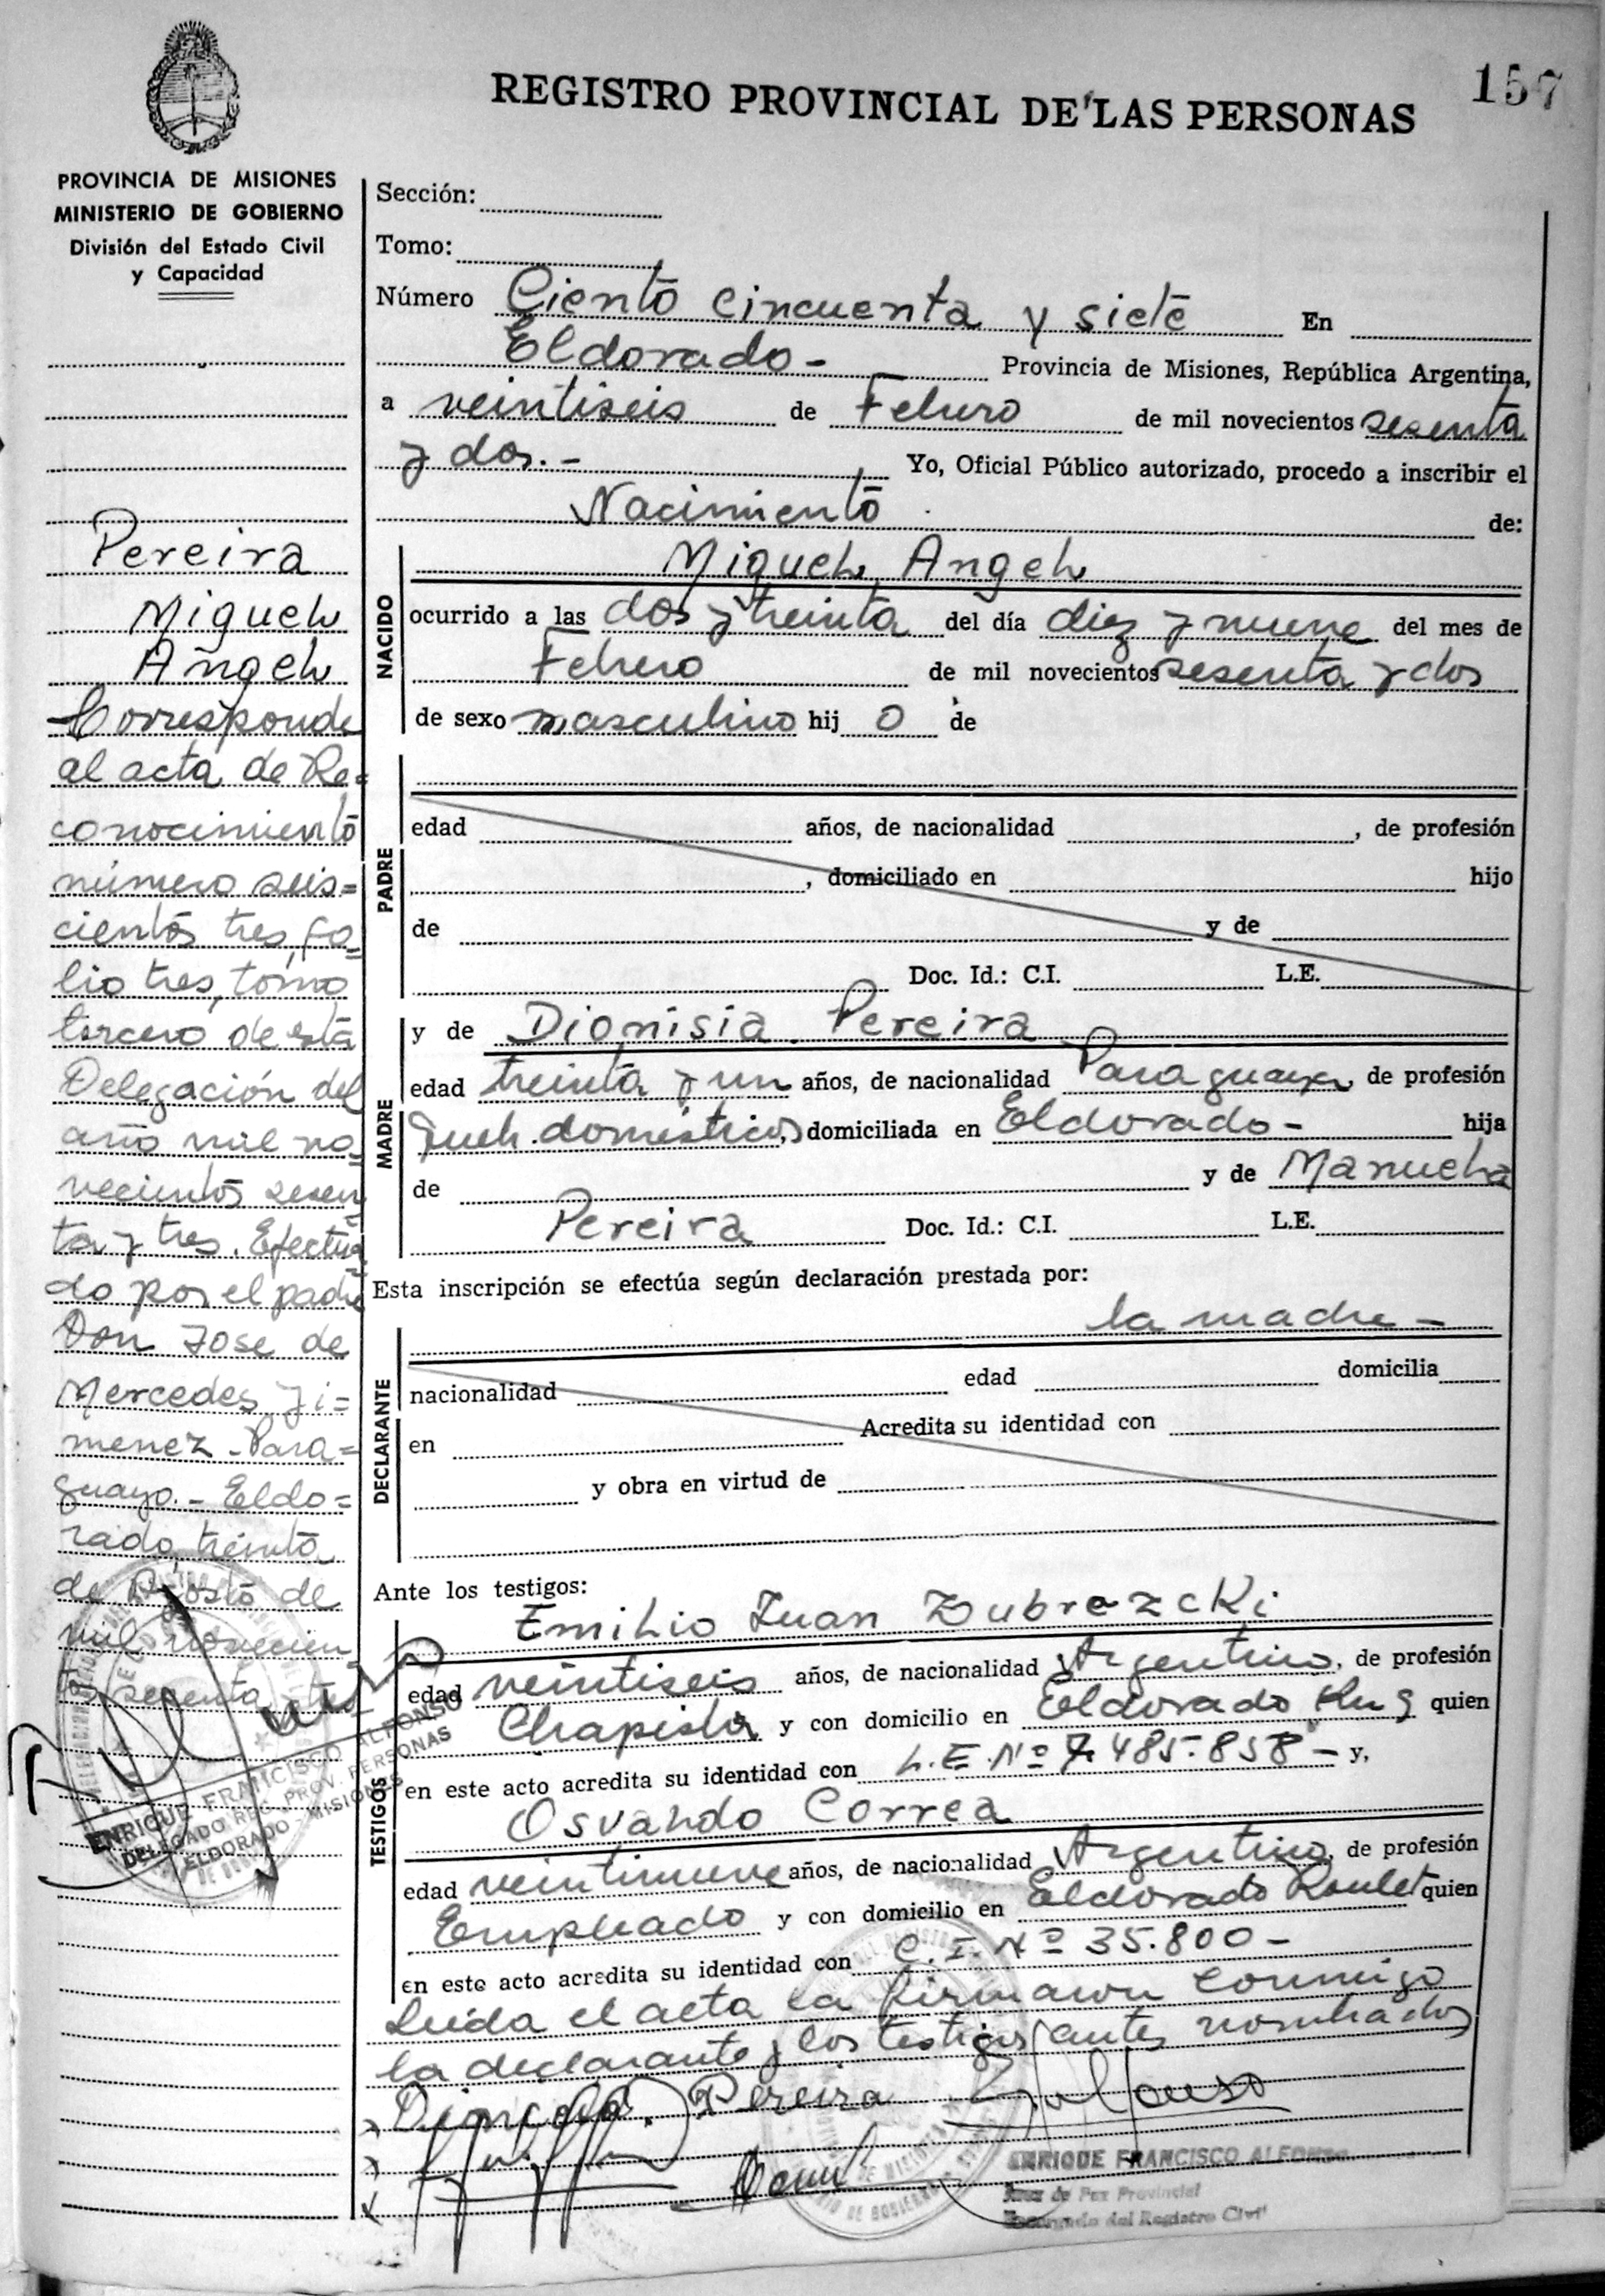 157
REGISTRO PROVINCIAL DE LAS PERSONAS
PROVINCIA DE MISIONES
MINISTERIO DE GOBIERNO
División del Estado Civil
y Capacidad
Pereira
Miguel
Angel
Corresponde
al acta de Re=
conocimiento
número seis=
cientos tres, fo=
lio tres, tomo
tercero de esta
Delegación del
año mil no=
vecientos sesen=
ta y tres. Efectua=
do por el padre
Don Jose de
Mercedes Ji=
menez - Para=
guayo. - Eldo=
rado, treinta
de Agosto de
mil novecien
tos sesenta y tres
ENRIQUE FRANCISCO ALFONSO
DELEGADO REG. PROV. PERSONAS
ELDORADO - MISIONES
Sección:
Tomo:
Número Ciento cincuenta y siete En
Eldorado - Provincia de Misiones, República Argentina,
a veintiseis de Febrero de mil novecientos sesenta
y dos. - Yo, Oficial Público autorizado, procedo a inscribir el
Nacimiento de:
NACIDO
Miguel Angel
ocurrido a las dos y treinta del día diez y nueve del mes de
Febrero de mil novecientos sesenta y dos
de sexo masculino hij o de
PADRE
edad años, de nacionalidad , de profesión
, domiciliado en hijo
de y de
Doc. Id.: C.I. L.E.
MADRE
y de Dionisia Pereira
edad treinta y un años, de nacionalidad Paraguaya, de profesión
Queh. domésticos, domiciliada en Eldorado - hija
de y de Manuela
Pereira Doc. Id.: C.I. L.E.
Esta inscripción se efectúa según declaración prestada por:
la madre -
DECLARANTE
nacionalidad edad domicilia
en Acredita su identidad con
y obra en virtud de
Ante los testigos:
TESTIGOS
Emilio Juan Dubrezcki
edad veintiseis años, de nacionalidad Argentino, de profesión
Chapista y con domicilio en Eldorado Km 9 quien
en este acto acredita su identidad con L.E. Nº 7.485.858 - y,
Osvaldo Correa
edad veintinueve años, de nacionalidad Argentino, de profesión
Empleado y con domicilio en Eldorado Roulet quien
en este acto acredita su identidad con C.I. Nº 35.800 -
Leída el acta la firmaron conmigo
la declarante y los testigos antes nombrados
Dionisia Pereira
ENRIQUE FRANCISCO ALFONSO
Juez de Paz Provincial
Encargado del Registro Civil